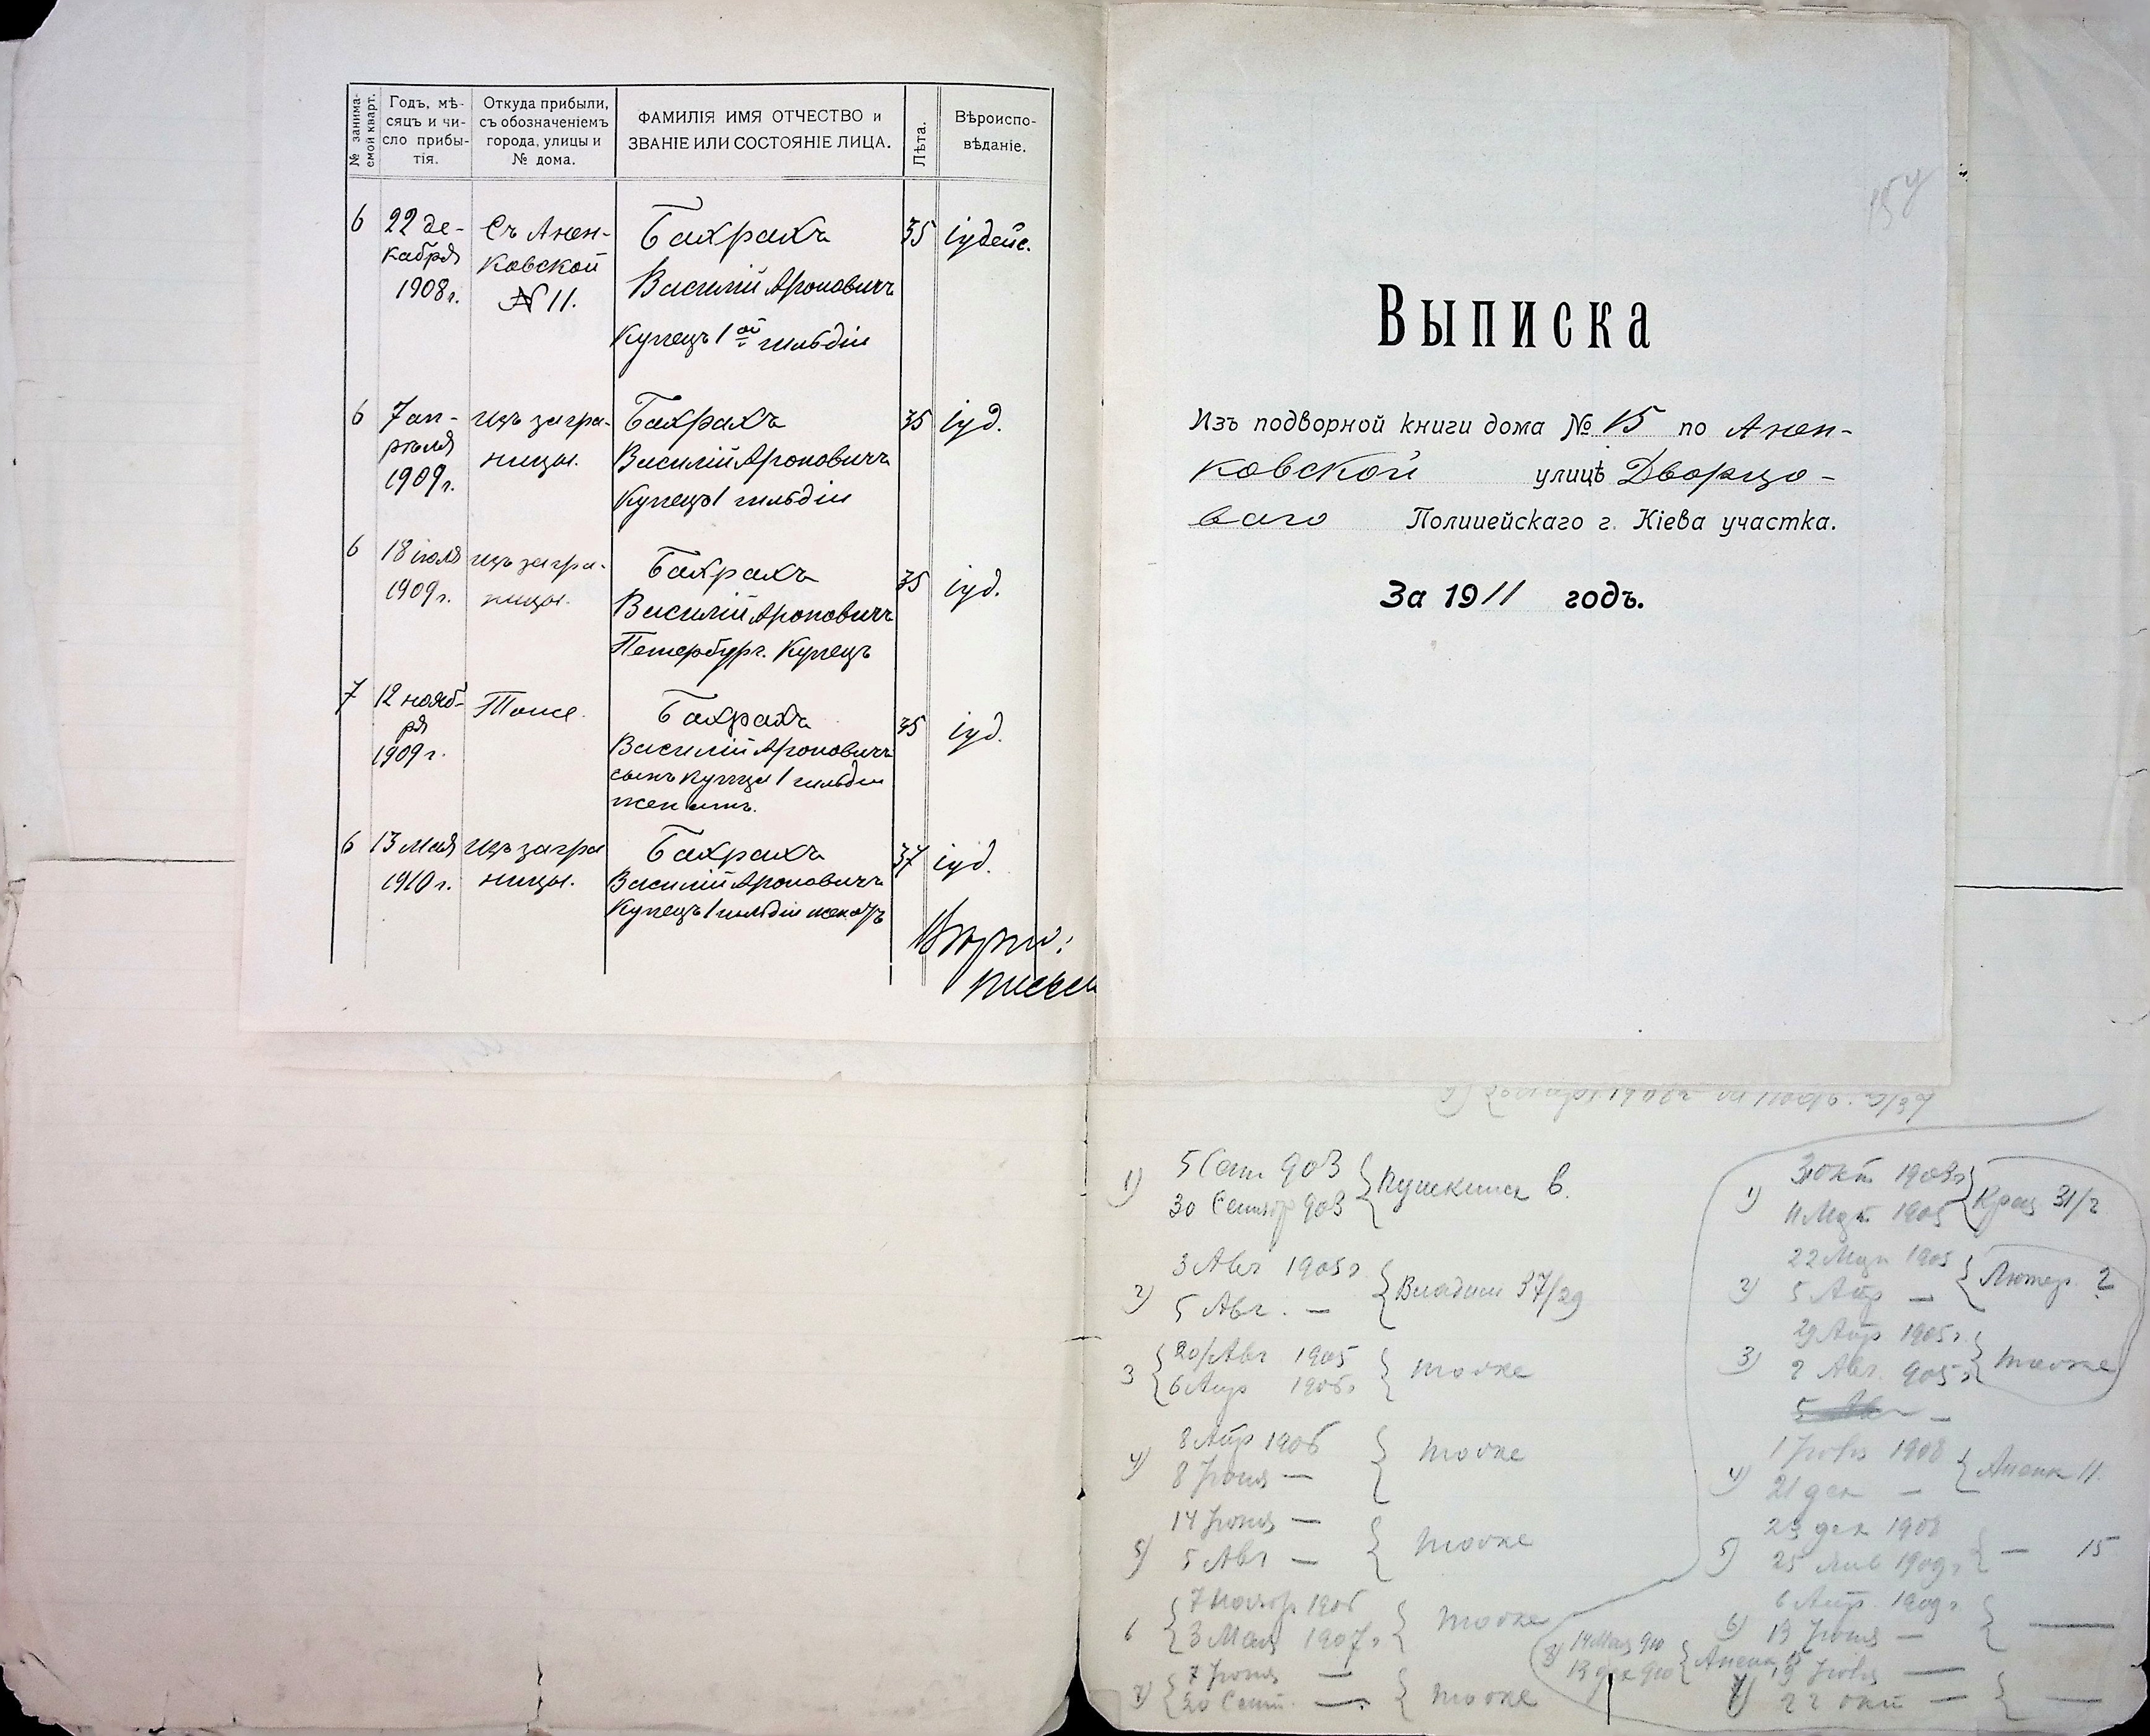 № занима-
емой кварт.
Годъ, мѣ-
сяцъ и чи-
сло прибы-
тія.
Откуда прибыли,
съ обозначеніемъ
города, улицы и
№ дома.
ФАМИЛІЯ ИМЯ ОТЧЕСТВО и
ЗВАНІЕ ИЛИ СОСТОЯНІЕ ЛИЦА.
Лѣта.
Вѣроиспо-
вѣданіе.
6
22 де-
кабря
1908 г.
Съ Анен-
ковской
№ 11.
Бахрахъ
Василій Ароновичъ
Купецъ 1ой гильдіи
35
іудейс.
6
7 ап-
рѣля
1909 г.
изъ загра-
ницы.
Бахрахъ
Василій Ароновичъ
Купецъ 1 гильдіи
35
іуд.
6
18 іюля
1909 г.
изъ загра-
ницы.
Бахрахъ
Василій Ароновичъ
Петербург. Купецъ
35
іуд.
7
12 нояб-
ря
1909 г.
Тоже.
Бахрахъ
Василій Ароновичъ
сынъ купца 1 гильдіи
женатъ.
35
іуд.
6
13 Мая
1910 г.
изъ загра
ницы.
Бахрахъ
Василій Ароновичъ
Купецъ 1 гильдіи женатъ
37
іуд.
Выписка
Изъ подворной книги дома № 15 по Анен-
ковской улицѣ Дворцо-
ваго Полицейскаго г. Кіева участка.
За 1911 годъ.
1) 5 Сент 903
30 Сентяб 903
Пушкинск 6.
2) 3 Авг 1905 г
5 Авг. —
Владим 37/29
3 20 Авг 1905
6 Апр 1906 г
тоже
4) 8 Апр 1906
8 Іюня —
тоже
5) 14 Іюня —
5 Авг —
тоже
6 7 Ноябр 1906
3 Мая 1907 г
тоже
7) 7 Іюня —
20 Сент. —
тоже
1) 3 окт 1903 г
11 Март 1905
Крещ 31/2
2) 22 Мар 1905
5 Апр —
Лютер. 2
3) 29 Апр 1905 г.
2 Авг. 905 г
тоже
4) 1 1908
21 дек —
Аненк 11.
5) 23 дек 1908
25 Янв 1909 г
— 15
6) 6 Апр. 1909 г
13 Іюня —
8) 14 Мая 910
13 дек 910
Аненк 15
7)
22 окт —